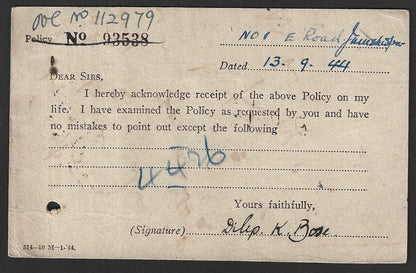 No 112979
Policy No 03538
No 1 E Road, Jamshedpur
Dated 13-9-44
DEAR SIRS,
I hereby acknowledge receipt of the above Policy on my
life. I have examined the Policy as requested by you and have
no mistakes to point out except the following
4476
Yours faithfully,
(Signature) Dilip K. Bose
514—10 M—1-'44.